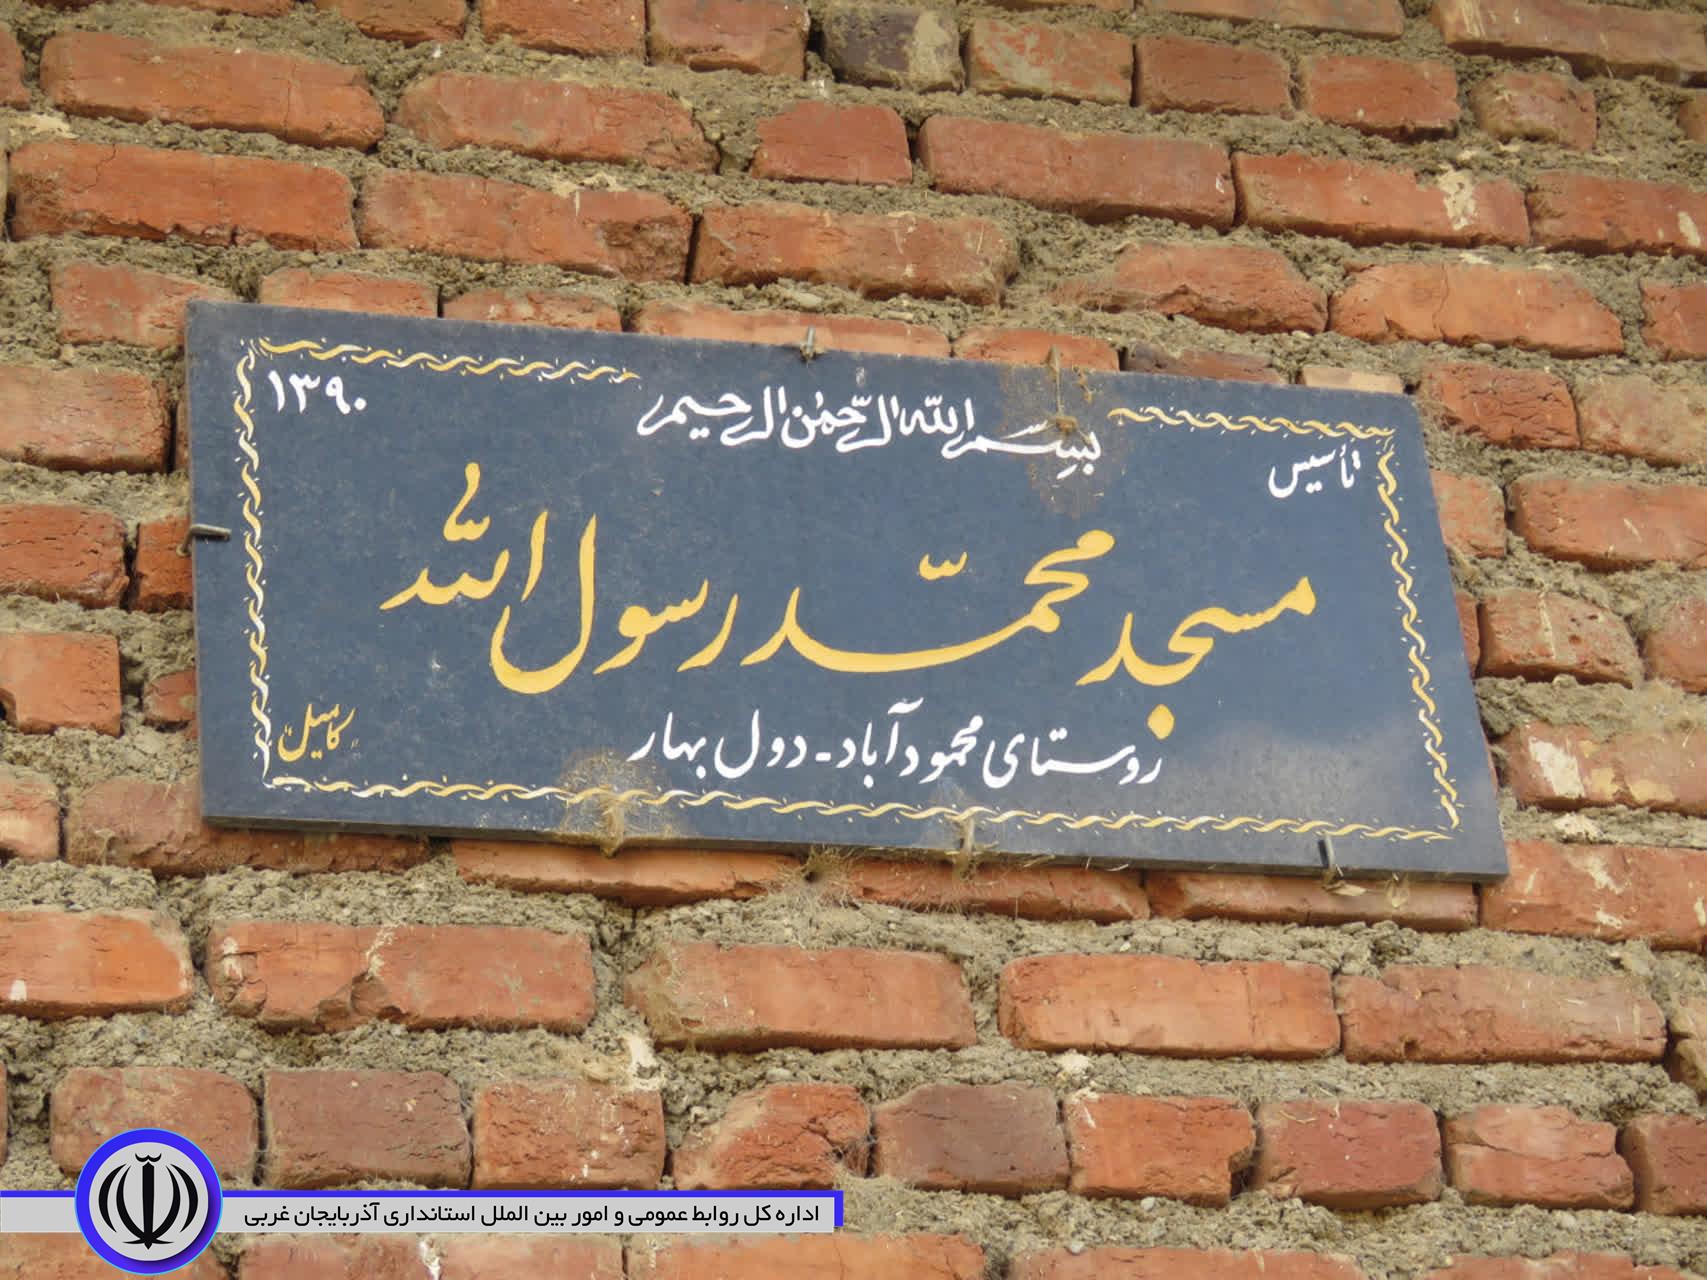 بِسْمِ اللّٰهِ الرَّحْمٰنِ الرَّحِيم
تأسیس ۱۳۹۰
مسجد محمّد رسول الله
روستای محمودآباد - دول بهار
اداره کل روابط عمومی و امور بین الملل استانداری آذربایجان غربی